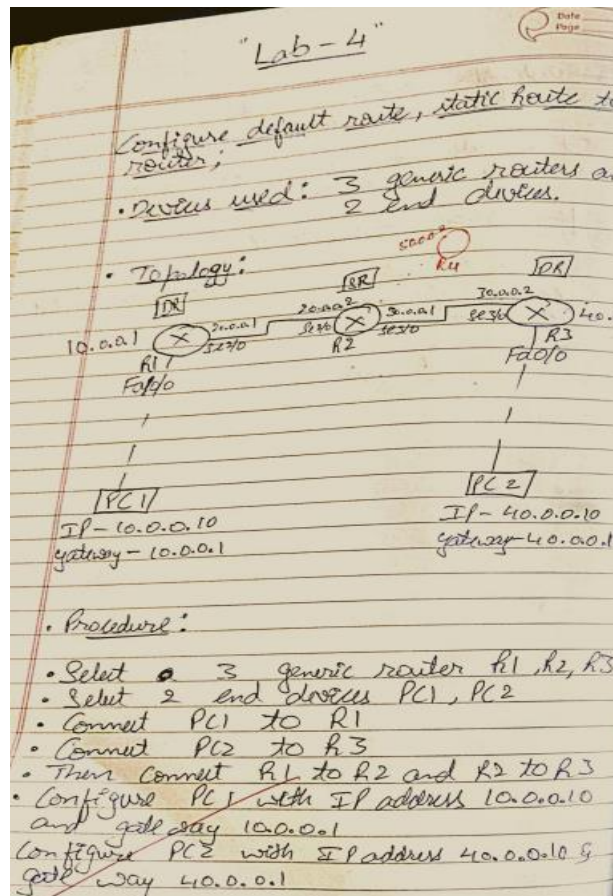 Date
Page
"Lab-4"
Configure default route, static route to
router;
• Devices used: 3 generic routers a
2 end devices.
• Topology:
50.0.0.2
R4
DR
SR
DR
10.0.0.1
20.0.0.1
20.0.0.2
30.0.0.1
30.0.0.2
40.
Se2/0
Se2/0
Se3/0
Se3/0
R1
R2
R3
Fa0/0
Fa0/0
PC1
PC2
IP-10.0.0.10
IP-40.0.0.10
gateway-10.0.0.1
gateway-40.0.0.1
• Procedure:
• Select a 3 generic router R1, R2, R3
• Select 2 end devices PC1, PC2
• Connect PC1 to R1
• Connect PC2 to R3
• Then connect R1 to R2 and R2 to R3
• Configure PC1 with IP address 10.0.0.10
and gate way 10.0.0.1
Configure PC2 with IP address 40.0.0.10 &
gate way 40.0.0.1